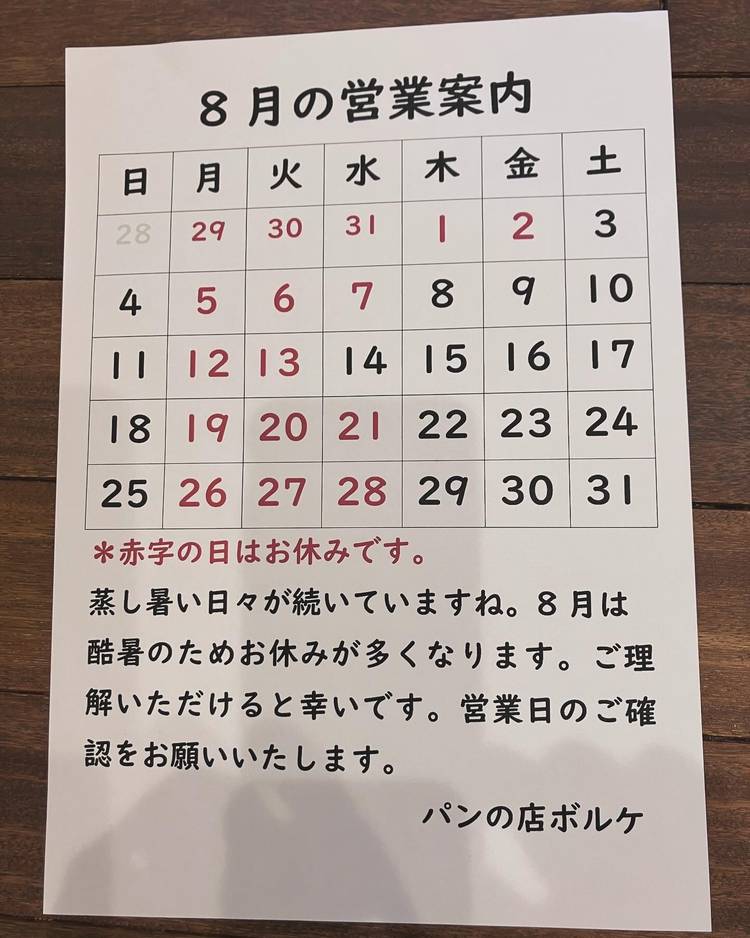 8月の営業案内
日 月 火 水 木 金 土
28 29 30 31 1 2 3
4 5 6 7 8 9 10
11 12 13 14 15 16 17
18 19 20 21 22 23 24
25 26 27 28 29 30 31
＊赤字の日はお休みです。
蒸し暑い日々が続いていますね。8月は
酷暑のためお休みが多くなります。ご理
解いただけると幸いです。営業日のご確
認をお願いいたします。
パンの店ボルケ